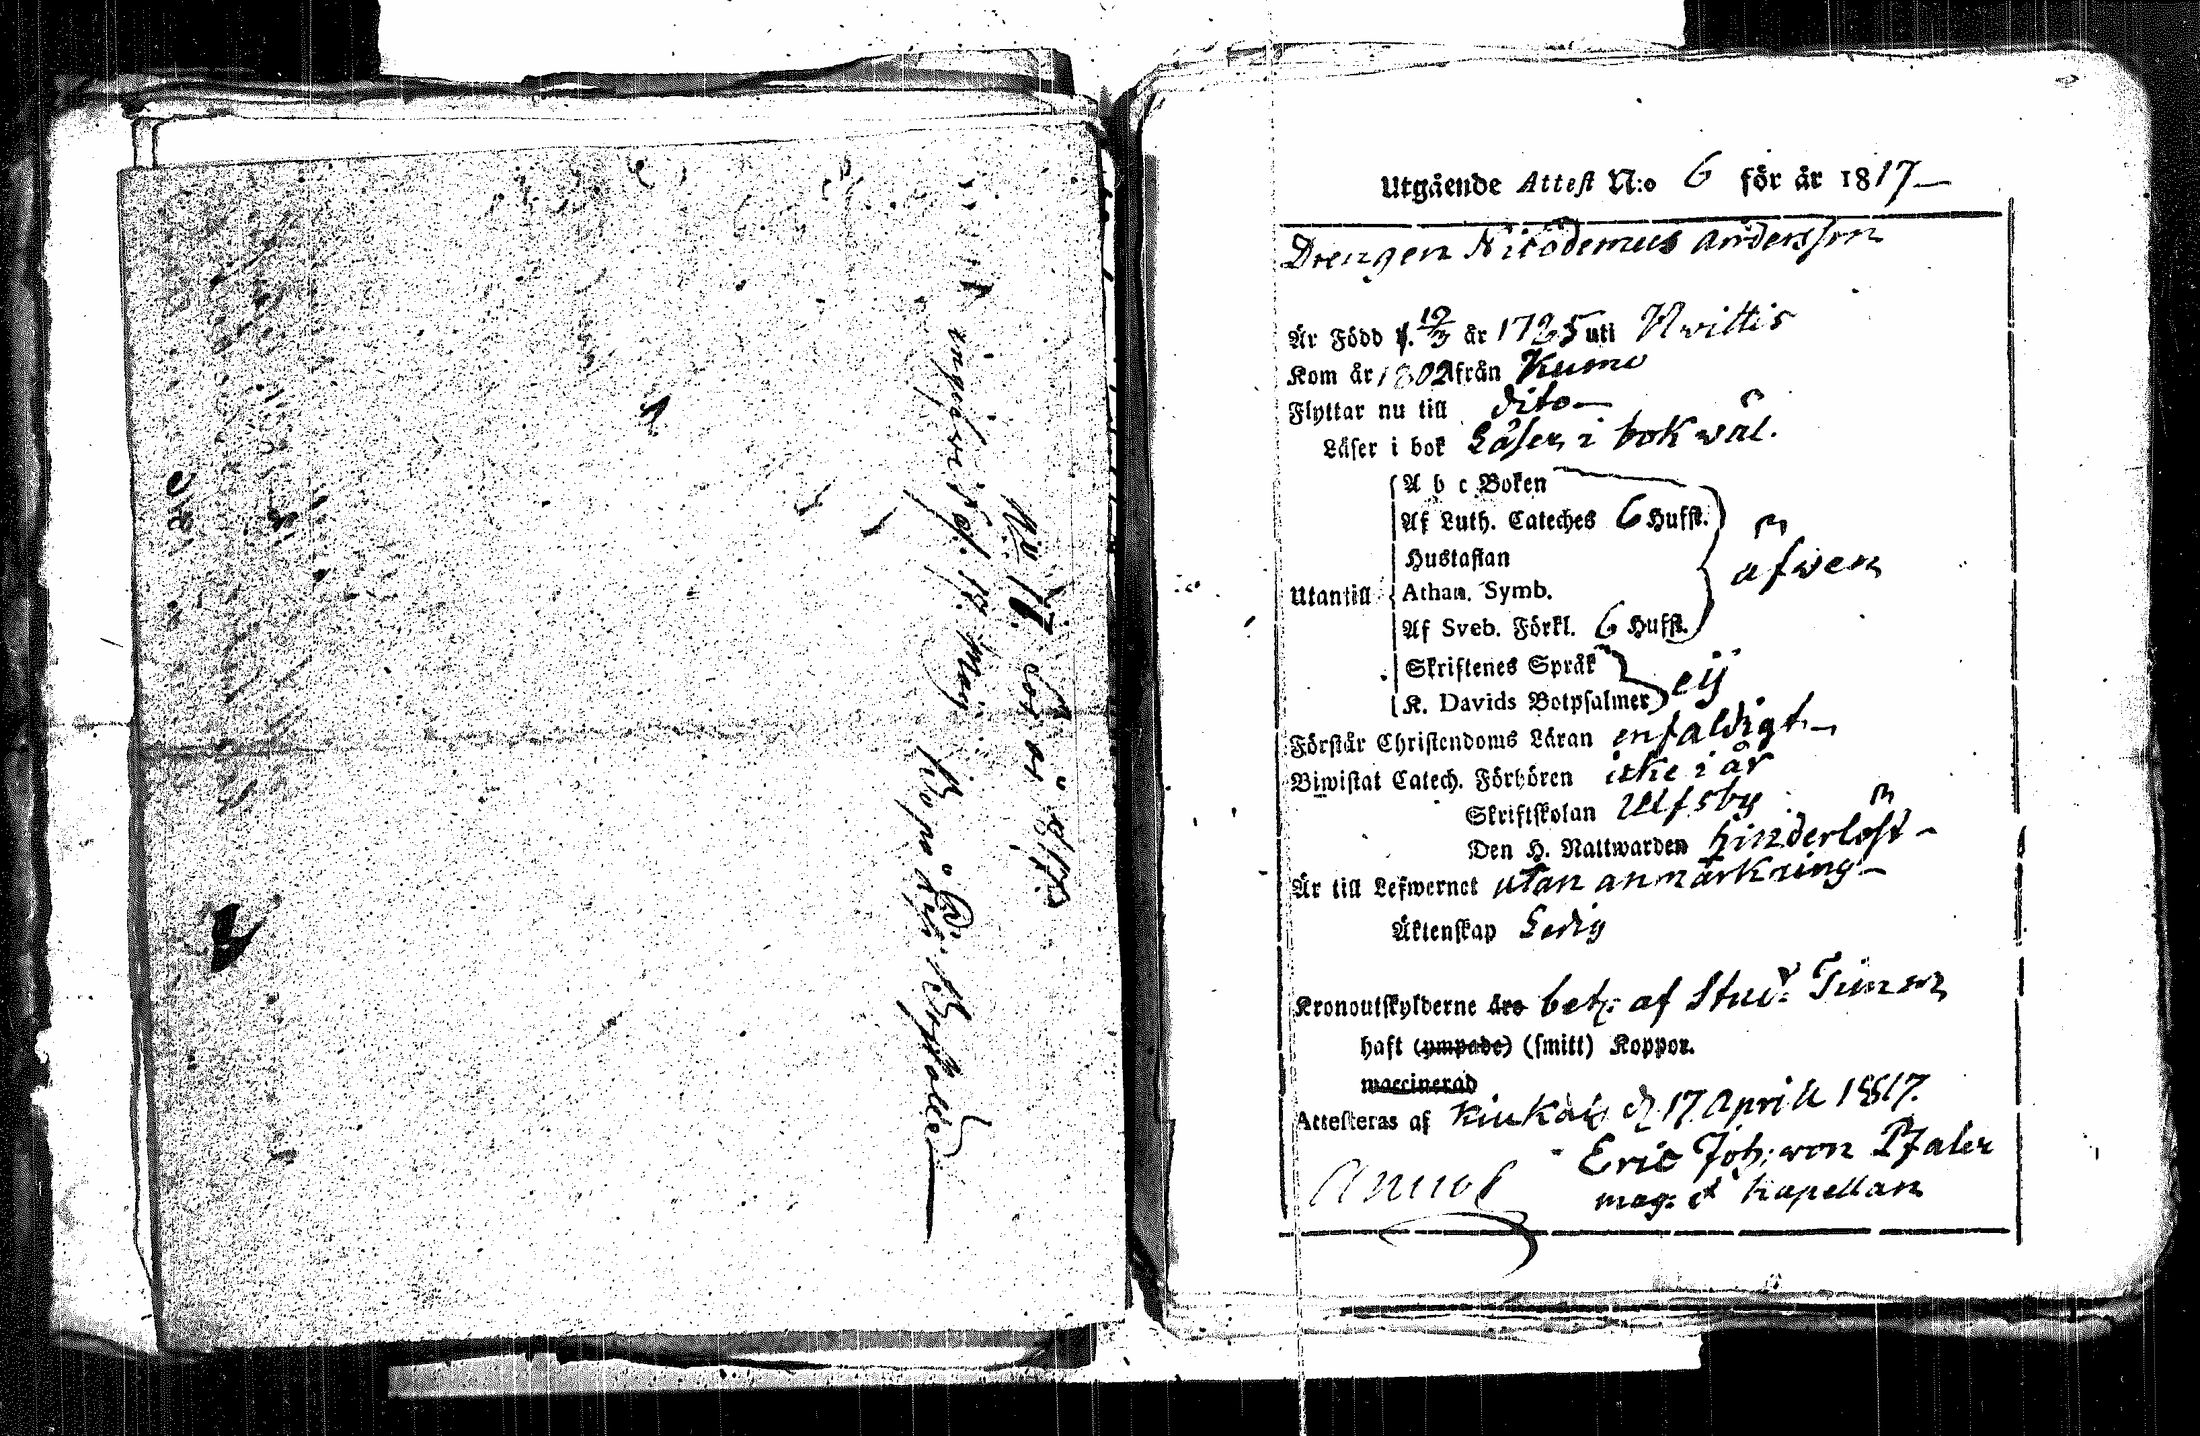 No 17 för år 1817.
Utgående Attest N:o 6 för år 1817
Drengen Nicodemus Andersson
Är Född d. 12/3 år 17 5 uti Hwittis
Kom år 1802 från Kumo
Flyttar nu till dito
Läser i bok Läser i bok wäl.
A b c Boken
Af Luth. Cateches 6 Hufst.
Hustaflan
äfwen
Utantill Athan. Symb.
Af Sveb. Förkl. 6 Hufst.
Skriftenes Språk
eij
K. Davids Botpsalmer
Förstår Christendoms Läran enfaldigt
Biwistat Catech. Förhören icke i år
Skriftskolan Ulfsby
Den H. Nattwarden hinderlöst
Är till Lefwernet utan anmärkning
Äktenskap Ledig
Kronoutskylderne äro bet: af Stud:
haft (ympade) (smitt) Koppor.
waccinerad
Attesteras af Kiukais d. 17 April 1817.
Eric Joh: von Pfaler
mag: et Kapellan